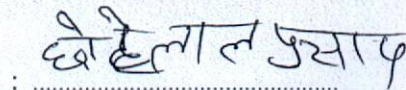 छोटेलाल प्रसाद
: ........................................